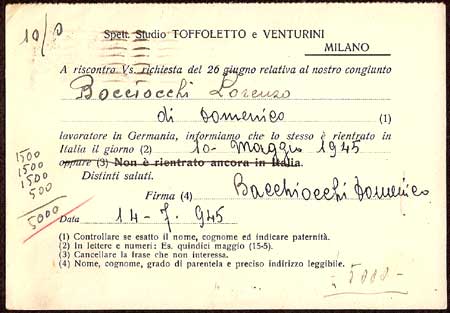 10/0
Spett. Studio TOFFOLETTO e VENTURINI
MILANO
A riscontro Vs. richiesta del 26 giugno relativa al nostro congiunto
Bocciocchi Lorenzo
di Domenico (1)
lavoratore in Germania, informiamo che lo stesso è rientrato in
Italia il giorno (2) 10 - Maggio 1945
oppure (3) Non è rientrato ancora in Italia.
Distinti saluti.
Firma (4) Bacchiocchi Domenico
Data 14 - 7. 945
1500
1500
1500
500
5000
(1) Controllare se esatto il nome, cognome ed indicare paternità.
(2) In lettere e numeri: Es. quindici maggio (15-5).
(3) Cancellare la frase che non interessa.
(4) Nome, cognome, grado di parentela e preciso indirizzo leggibile.
5000-